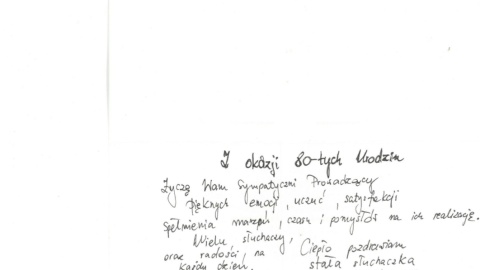 Z okazji 80-tych Urodzin
Życzę Wam Sympatyczni Prowadzący
Pięknych emocji, uczuć, satysfakcji
Spełnienia marzeń, czasu i pomysłów na ich realizację.
Wielu słuchaczy,
oraz radości, na
każdy dzień.
Ciepło pozdrawiam
stała słuchaczka